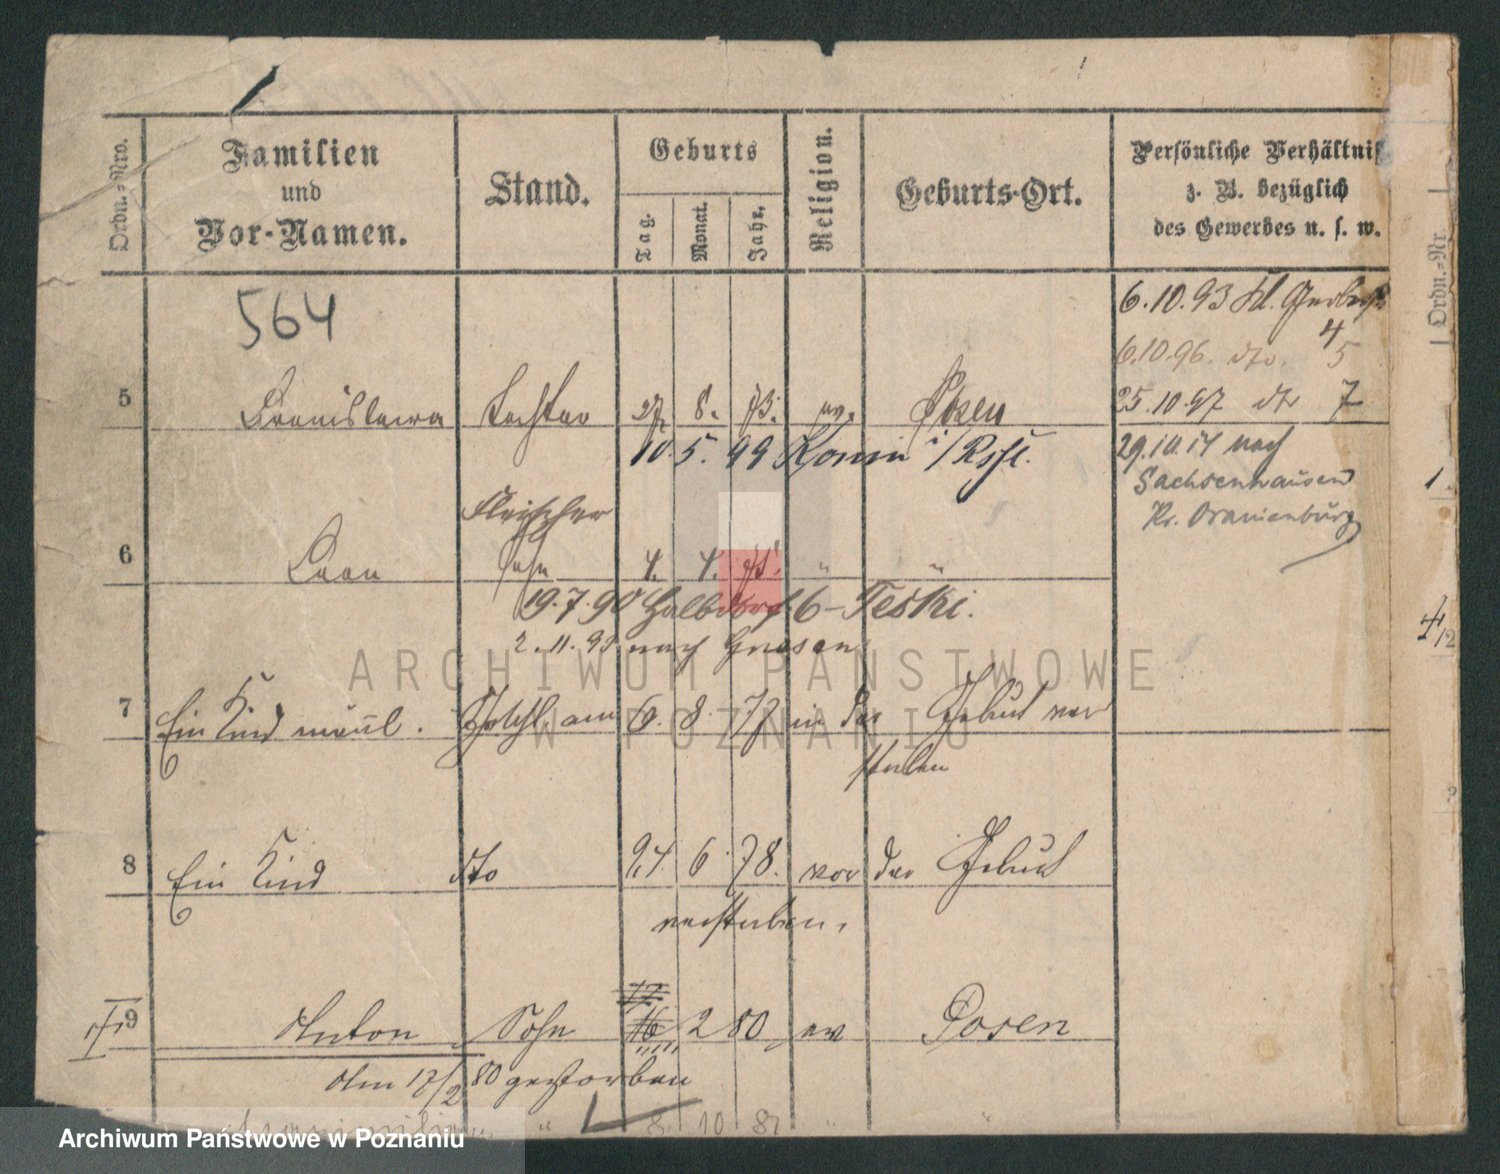 Ordn.-Nro.
Familien
und
Vor-Namen.
Stand.
Geburts
Tag.
Monat.
Jahr.
Religion.
Geburts-Ort.
Persönliche Verhältniß
z. B. bezüglich
des Gewerbes u. s. w.
Ordn.-Nr
564
6.10.93
4
6.10.96. dto. 5
5 Bronislawa Tochter 27 8. 73. Posen
25.10.97 dto 7
10 5. 99 Konin i/Rssl.
29.10.17 nach
Sachsenhausen
Kr. Oranienburg
1.
Fleischer
6 Leon Sohn 4. 4. 75. " "
19.7.90 Halbdorf 6 - Teski.
2.11.93 nach Gnesen
ARCHIWUM PAŃSTWOWE
W POZNANIU
7 Ein Kind männl. am 6. 8. 77 in der Geburt ver
storben
8 Ein Kind dto 24. 6 78. vor der Geburt
verstorben.
9 Anton Sohn 17 16 2 80 ev Posen
Am 17/2 80 gestorben
" 8 10 81 " "
Archiwum Państwowe w Poznaniu